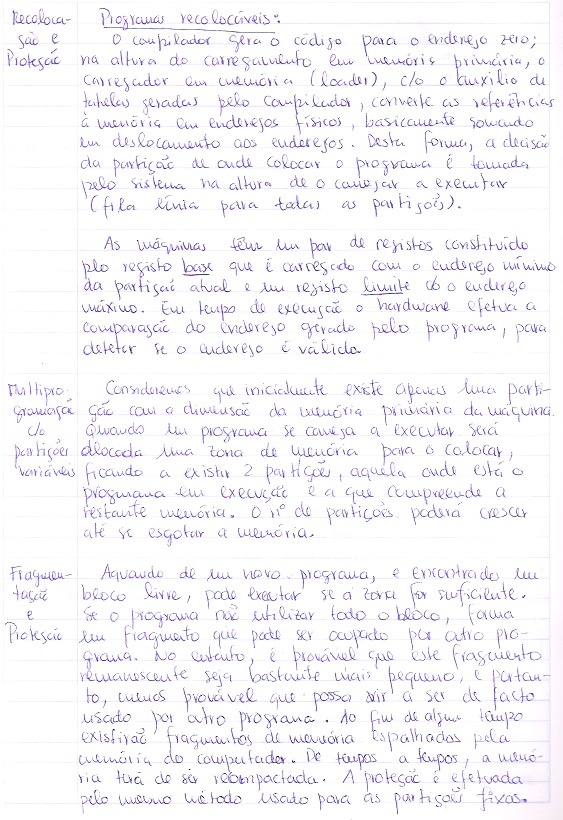 Recoloca-
ção e
Proteção
Programas recolocáveis:
O compilador gera o código para o endereço zero;
na altura do carregamento em memória primária, o
carregador em memória (loader), c/o o auxílio de
tabelas geradas pelo compilador, converte as referências
à memória em endereços físicos, basicamente somando
um deslocamento aos endereços. Desta forma, a decisão
da partição de onde colocar o programa é tomada
pelo sistema na altura de o começar a executar
(fila única para todas as partições).
As máquinas têm um par de registos constituído
plo registo base que é carregado com o endereço mínimo
da partição atual e um registo limite c/o o endereço
máximo. Em tempo de execução o hardware efetua a
comparação do endereço gerado pelo programa, para
detetar se o endereço é válido.
Multipro-
gramação
c/o
partições
variáveis
Consideremos que inicialmente existe apenas uma parti-
ção com a dimensão da memória primária da máquina.
Quando um programa se começa a executar será
alocada uma zona de memória para o colocar,
ficando a existir 2 partições, aquela onde está o
programa em execução e a que compreende a
restante memória. O nº de partições poderá crescer
até se esgotar a memória.
Fragmen-
tação
e
Proteção
Aquando de um novo programa, é encontrado um
bloco livre, pode executar se a zona for suficiente.
Se o programa não utilizar todo o bloco, forma
um fragmento que pode ser ocupado por outro pro-
grama. No entanto, é provável que este fragmento
remanescente seja bastante mais pequeno, e portan-
to, menos provável que possa vir a ser de facto
usado por outro programa. Ao fim de algum tempo
existirão fragmentos de memória espalhados pela
memória do computador. De tempos a tempos, a memó-
ria terá de ser recompactada. A proteção é efetuada
pelo mesmo método usado para as partições fixas.